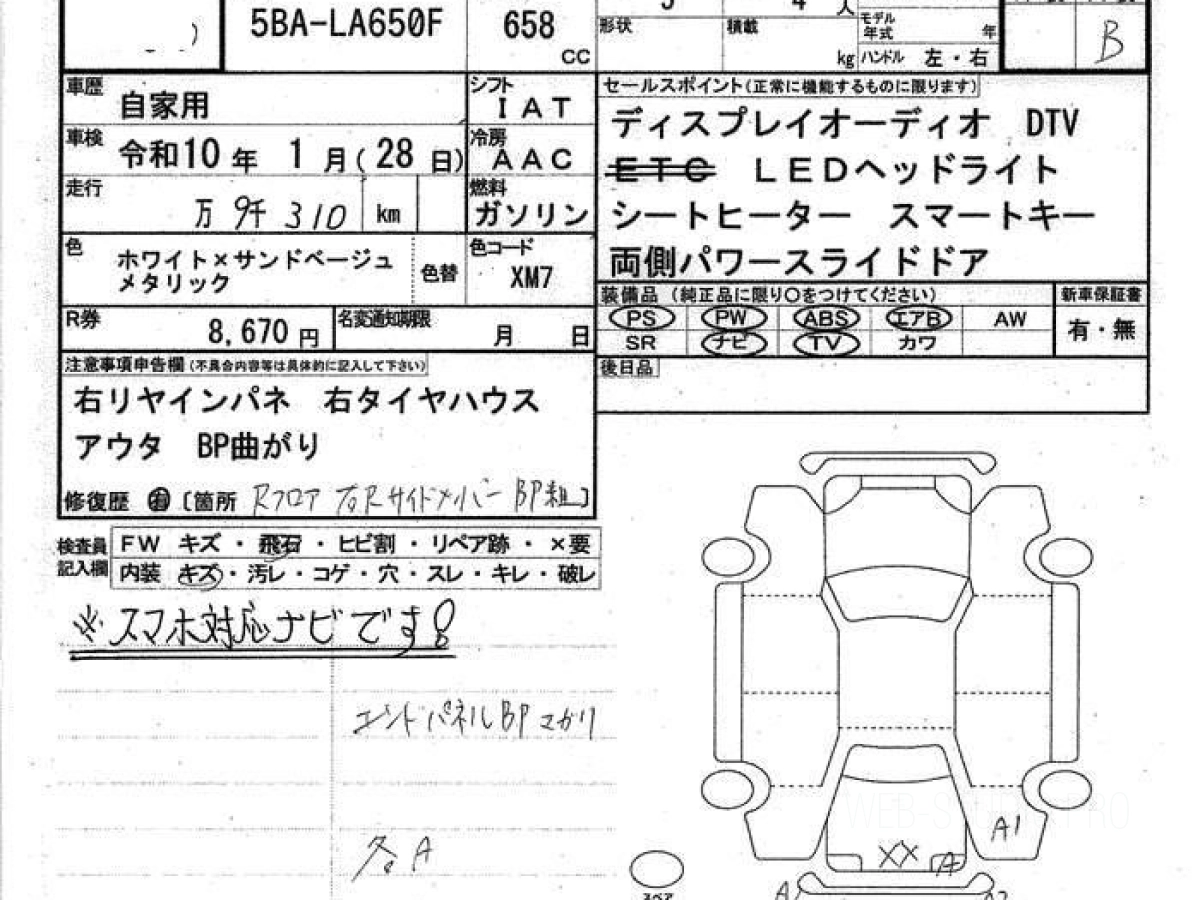 5BA-LA650F
658
CC
形状
積載
kg
人
モデル
年式
年
ハンドル 左・右
B
車歴
自家用
シフト
IAT
車検
令和10年 1月(28日)
冷房
AAC
走行
万 9千 310 km
燃料
ガソリン
色
ホワイト×サンドベージュ
メタリック
色替
色コード
XM7
R券
8,670円
名変通知期限
月 日
注意事項申告欄(不具合内容等は具体的に記入して下さい)
右リヤインパネ 右タイヤハウス
アウタ BP曲がり
修復歴 有 [箇所 Rフロア 右Rサイドメンバー BP組]
セールスポイント(正常に機能するものに限ります)
ディスプレイオーディオ DTV
ETC LEDヘッドライト
シートヒーター スマートキー
両側パワースライドドア
装備品 (純正品に限り〇をつけてください)
PS PW ABS エアB AW
SR ナビ TV カワ
新車保証書
有・無
後日品
検査員
記入欄
FW キズ・飛石・ヒビ割・リペア跡・×要
内装 キズ・汚レ・コゲ・穴・スレ・キレ・破レ
※スマホ対応ナビです!
エンドパネルBPマガリ
各A
A1
XX
A
WEB-S